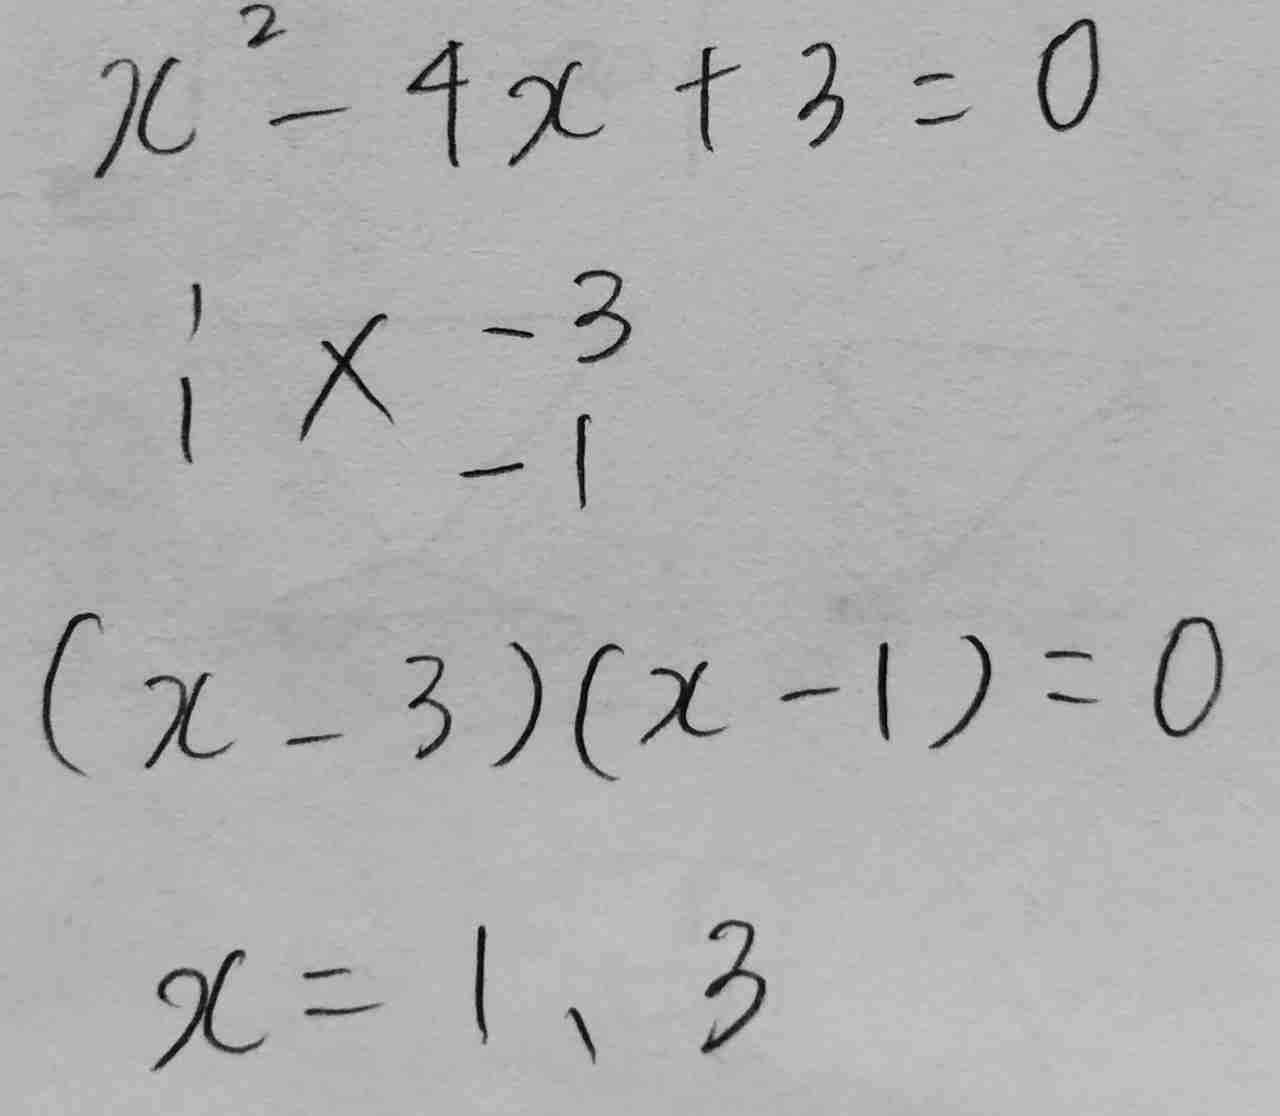 x² - 4x + 3 = 0
1 × -3
1 -1
(x - 3)(x - 1) = 0
x = 1、3